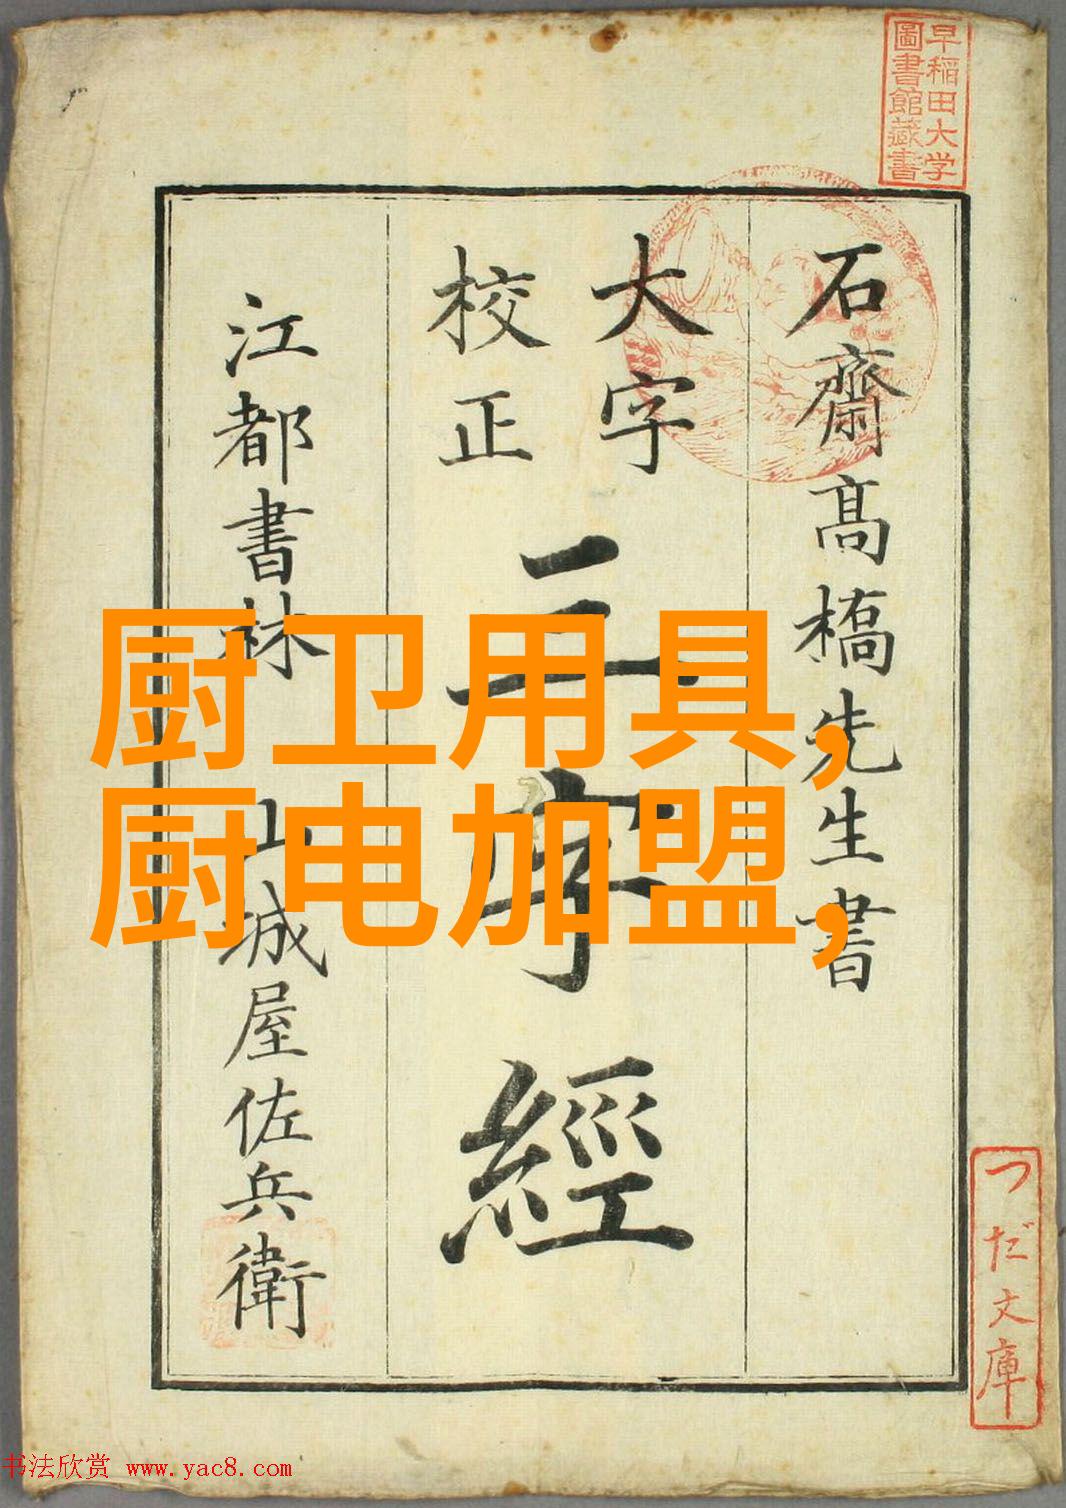 早稲田大学
圖書館藏書
石齋高橋先生書
大字
校正
三字經
江都書林 山城屋佐兵衛
厨卫用具,
厨电加盟,
つだ文庫
书法欣赏 www.yac8.com